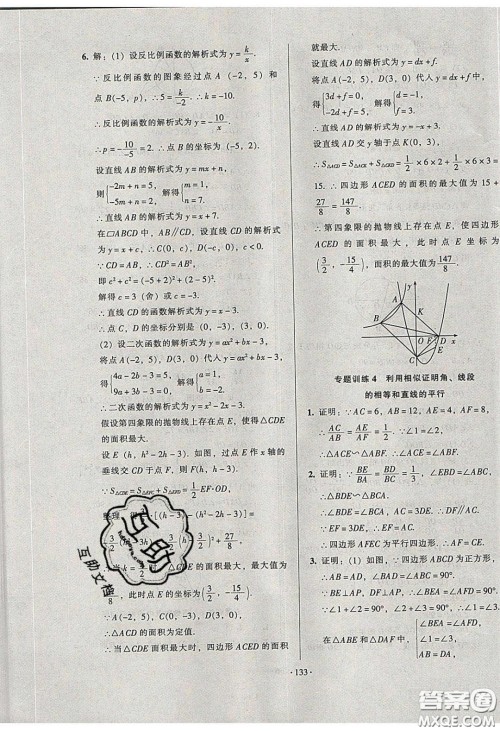 6. 解：(1) 设反比例函数的解析式为 y=k/x.
∵反比例函数的图象经过点 A(-2, 5) 和
点 B(-5, p), ∴5=k/-2. ∴k=-10.
∴反比例函数的解析式为 y=-10/x.
∴p=-10/-5=2. ∴点 B 的坐标为 (-5, 2).
设直线 AB 的解析式为 y=mx+n,
则{-2m+n=5, -5m+n=2. 解得{m=1, n=7.
∴直线 AB 的解析式为 y=x+7.
在□ABCD 中, AB∥CD, 设直线 CD 的解析式
为 y=x+c, ∴C(0, c), D(-c, 0).
∵CD=AB, ∴CD²=AB².
即 c²+c²=(-5+2)²+(2-5)².
解得 c=3 (舍) 或 c=-3.
∴直线 CD 的函数解析式为 y=x-3.
∴点 C, D 的坐标分别是 (0, -3), (3, 0).
(2) 设二次函数的解析式为 y=ax²+bx-3,
得{4a-2b-3=5, 9a+3b-3=0. 解得{a=1, b=-2.
∴二次函数解析式为 y=x²-2x-3.
假设第四象限的抛物线上存在点 E, 使得△CDE
的面积最大.
设 E(h, h²-2h-3). 如图, 过点 E 作 x 轴的
垂线交 CD 于点 F, 则 F(h, h-3).
∴S△CDE=S△EFC+S△EFD=1/2 EF·OD.
[(h-3)-(h²-2h-3)]=
+27/8,
△CDE 的面积最大, 最大值为
27/8. 此时点 E 的坐标为 (3/2, -15/4).
∵A(-2, 5), C(0, -3), D(3, 0),
∴△ACD 的面积为定值.
∴当△CDE 面积最大时, 四边形 ACED 的面积
就最大.
设直线 AD 的解析式为 y=dx+f.
将点 A(-2, 5), D(3, 0) 代入 y=dx+f,
得{3d+f=0, -2d+f=5. 解得{d=-1, f=3.
∴直线 AD 的解析式为 y=-x+3.
设直线 AD 交 y 轴于点 K(0, 3),
∴S△ACD=S△ACK+S△CKD=1/2×6×2+1/2×6×3=
15. ∴四边形 ACED 的面积的最大值为 15+
27/8=147/8.
∴第四象限的抛物线上存在点 E, 使四边形
ACED 的面积最大, 此时点 E 的坐标为
(3/2, -15/4), 面积的最大值为 147/8.
A
K
B
O F D
C
E
x
专题训练 4 利用相似证明角、线段
的相等和直线的平行
1. 证明: ∵AC=6, AB=12, AE=4, AF=8,
∴AC/AB=AE/AF=1/2. ∵∠1=∠2,
∴△ACE∽△ABF. ∴∠ACE=∠ABF.
2. 证明: ∵BE/BA=BD/BC=1/3, ∠EBD=∠ABC,
∴△BDE∽△BCA.
∴DE/AC=1/3, ∠BDE=∠C. ∵DF=2DE,
∴EF=3DE, ∴EF=AC.
∴四边形 AFEC 为平行四边形.
3. 证明: (1) 如图, ∵四边形 ABCD 为正方形,
∴∠DAF=∠ABE=90°, DA=AB=BC.
∵DG⊥AE, ∴∠AGF=90°.
∵∠1+∠2=90°, ∠2+∠3=90°, ∴∠1=∠3.
在△ABE 和△DAF 中, {∠BEA=∠AFD, ∠1=∠3, AB=DA,
·133·
互助
互助文档
答案圈
MXQE.COM